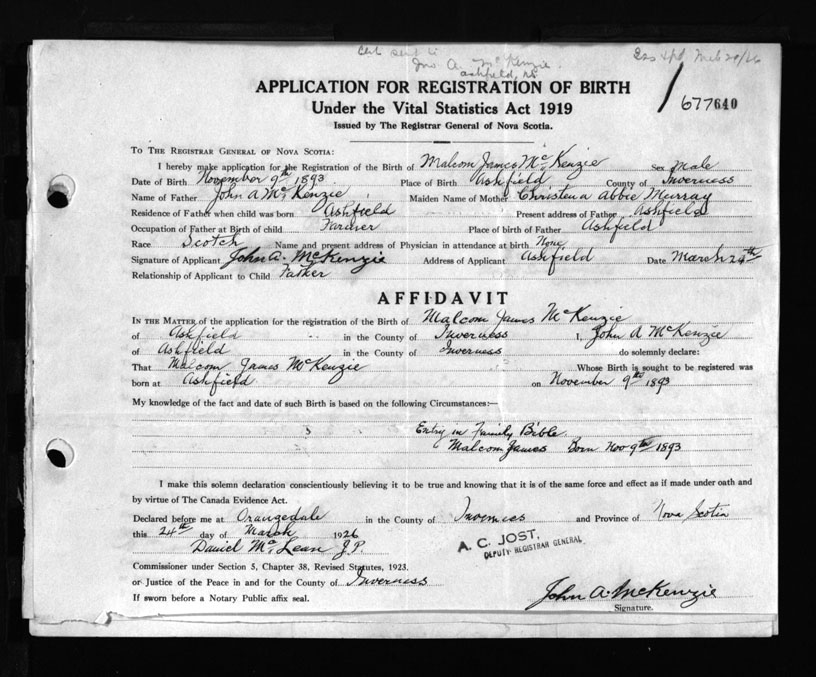 Cert sent to
Jno. A. McKenzie.
Ashfield, NS
APPLICATION FOR REGISTRATION OF BIRTH
Under the Vital Statistics Act 1919
Issued by The Registrar General of Nova Scotia.
677640
TO THE REGISTRAR GENERAL OF NOVA SCOTIA:
I hereby make application for the Registration of the Birth of Malcom James McKenzie Sex Male
Date of Birth November 9th 1893 Place of Birth Ashfield County of Inverness
Name of Father John A McKenzie Maiden Name of Mother Christena Abbie Murray
Residence of Father when child was born Ashfield Present address of Father Ashfield
Occupation of Father at Birth of child Farmer Place of birth of Father Ashfield
Race Scotch Name and present address of Physician in attendance at birth None
Signature of Applicant John A. McKenzie Address of Applicant Ashfield Date March 24th
Relationship of Applicant to Child Father
AFFIDAVIT
IN THE MATTER of the application for the registration of the Birth of Malcom James McKenzie
of Ashfield in the County of Inverness I, John A McKenzie
of Ashfield in the County of Inverness do solemnly declare:
That Malcom James McKenzie Whose Birth is sought to be registered was
born at Ashfield on November 9th 1893
My knowledge of the fact and date of such Birth is based on the following Circumstances:—
Entry in Family Bible
Malcom James Born Nov 9th 1893
I make this solemn declaration conscientiously believing it to be true and knowing that it is of the same force and effect as if made under oath and
by virtue of The Canada Evidence Act.
Declared before me at Orangedale in the County of Inverness and Province of Nova Scotia
this 24th day of March 1926
Daniel McLean J.P.
A. C. JOST,
DEPUTY REGISTRAR GENERAL
Commissioner under Section 5, Chapter 38, Revised Statutes, 1923.
or Justice of the Peace in and for the County of Inverness
If sworn before a Notary Public affix seal.
John A. McKenzie
Signature.